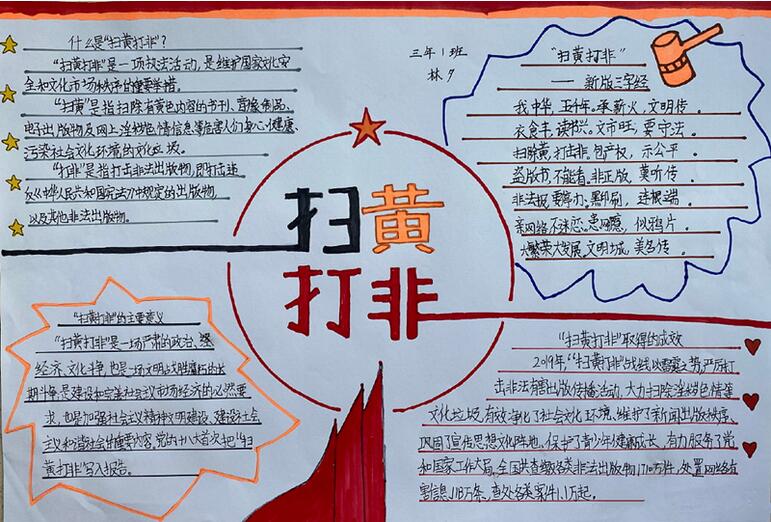 什么是“扫黄打非”?
“扫黄打非”是一项执法活动,是维护国家文化安
全和文化市场秩序的重要举措。
“扫黄”是指扫除有黄色内容的书刊、音像制品、
电子出版物及网上淫秽色情信息等危害人们身心健康、
污染社会文化环境的文化垃圾。
“打非”是指打击非法出版物,即打击违
反《中华人民共和国宪法》中规定的出版物,
以及其他非法出版物。
三年1班
林
“扫黄打非”
—— 新版三字经
我中华,五千年。承薪火,文明传。
衣食丰,读书兴。文市旺,要守法。
扫除黄,打击非。包产权,示公平。
盗版书,不能看。非正版,莫听传。
非法报,要举办。黑印刷,连根端。
亲网络,不迷恋。患网瘾,似鸦片。
大繁荣,大发展。文明城,美名传。
扫黄
打非
“扫黄打非”的主要意义
“扫黄打非”是一场严肃的政治、
经济、文化斗争,也是一场文明战胜腐朽的长
期斗争,是建设和完善社会主义市场经济的必然要
求,也是加强社会主义精神文明建设、建设社会
主义和谐社会的重要内容,党的十八大首次把“扫
黄打非”写入报告。
“扫黄打非”取得的成效
2019年,“扫黄打非”战线以雷霆之势,严厉打
击非法有害出版传播活动,大力扫除淫秽色情等
文化垃圾,有效净化了社会文化环境、维护了新闻出版秩序、
巩固了宣传思想文化阵地、保护了青少年健康成长、有力服务了党
和国家工作大局。全国共查缴各类非法出版物1710万件,处置网络有
害信息1118万条,查处各类案件1.1万起。